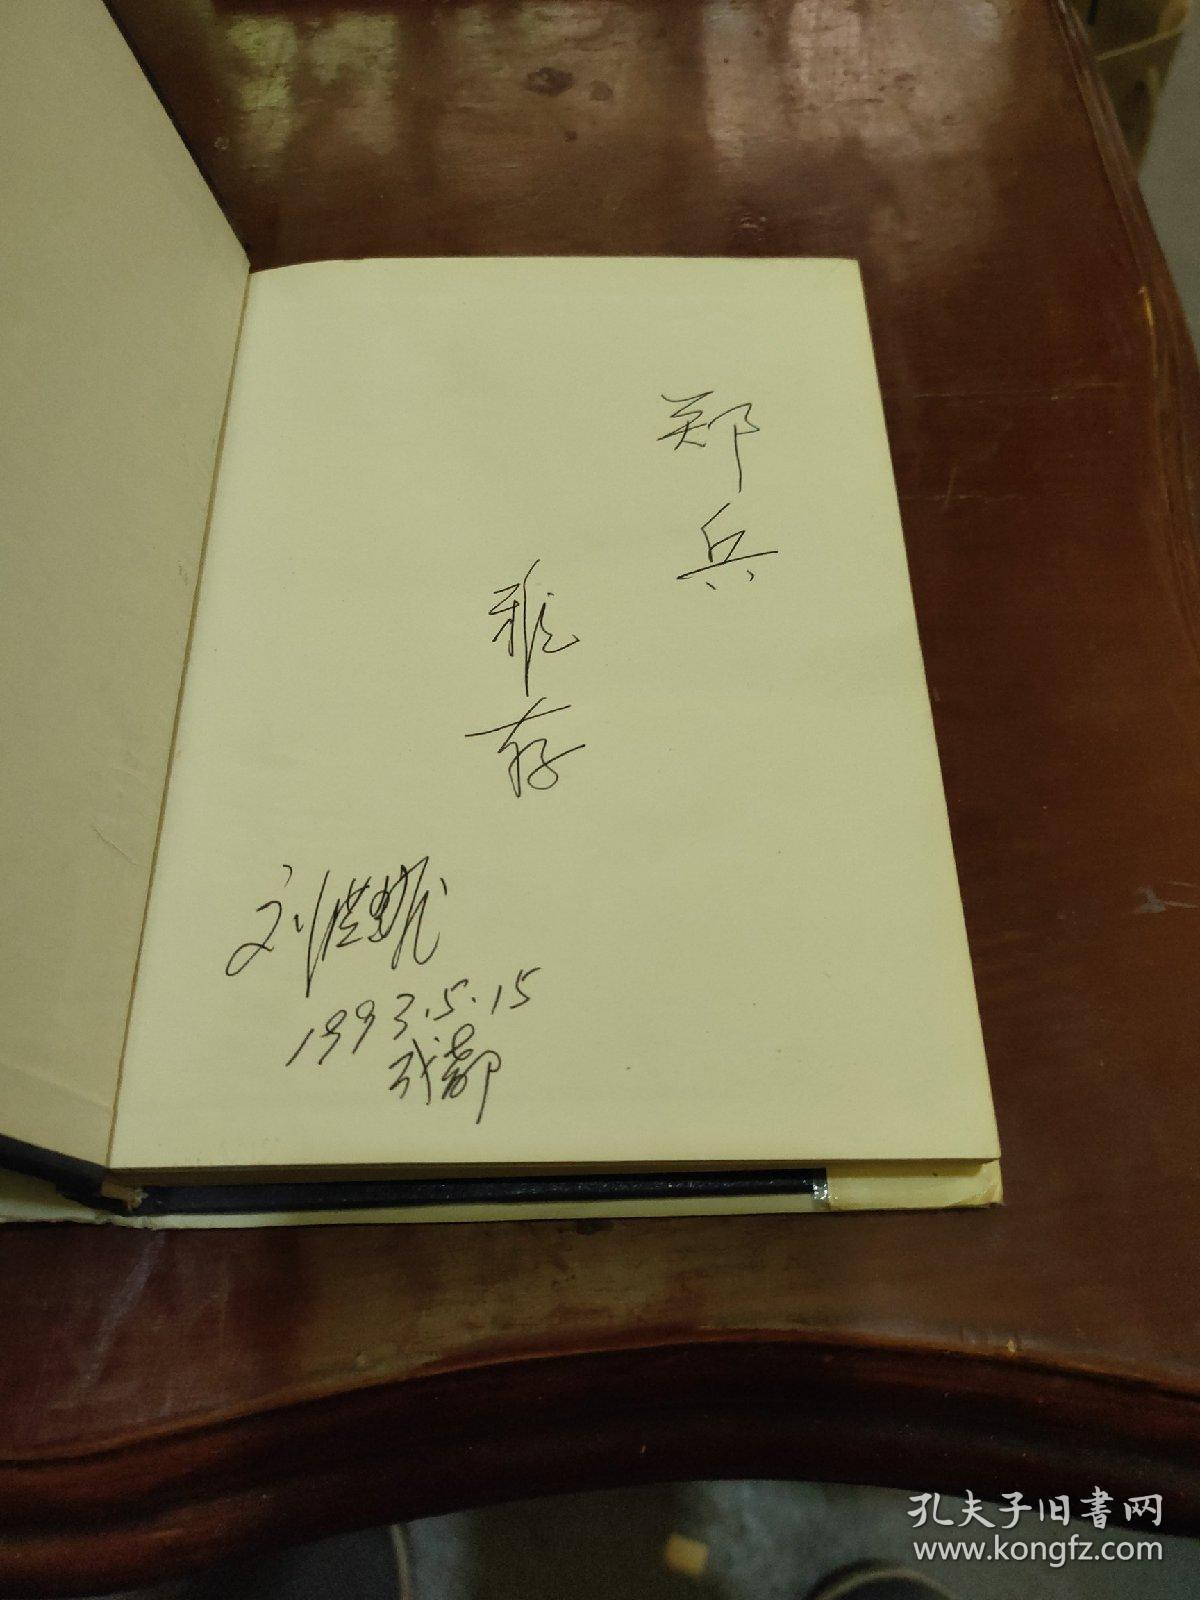 郑兵
雅存
刘
1993.5.15
成都
孔夫子旧書网
www.kongfz.com